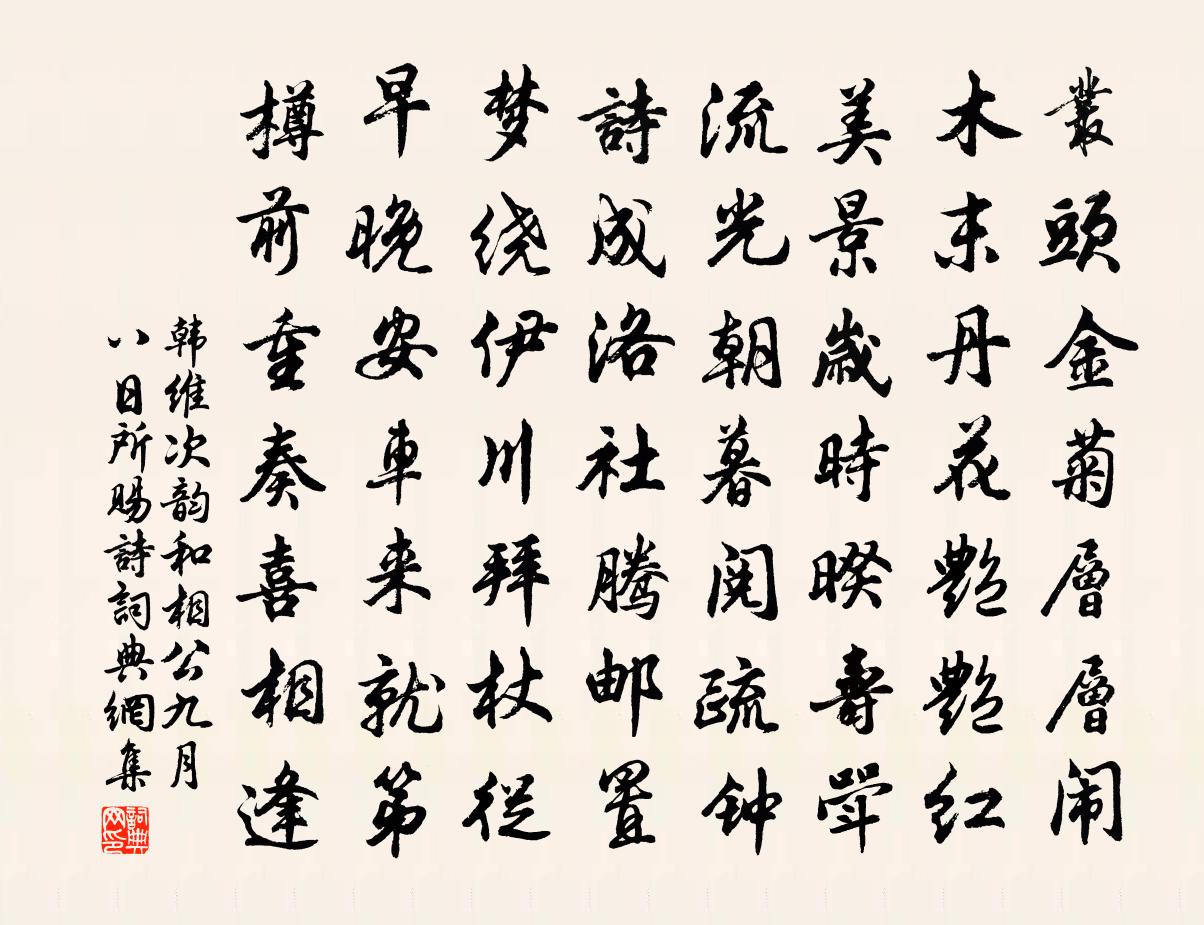 叢頭金菊層層闹
木末丹花艷艷红
美景歲時暌壽斝
流光朝暮閲疏钟
詩成洛社腾邮置
梦绕伊川拜杖従
早晚安車来就第
樽前重奏喜相逢
韩维次韵和相公九月
八日所赐詩詞典網集
詞典
网印